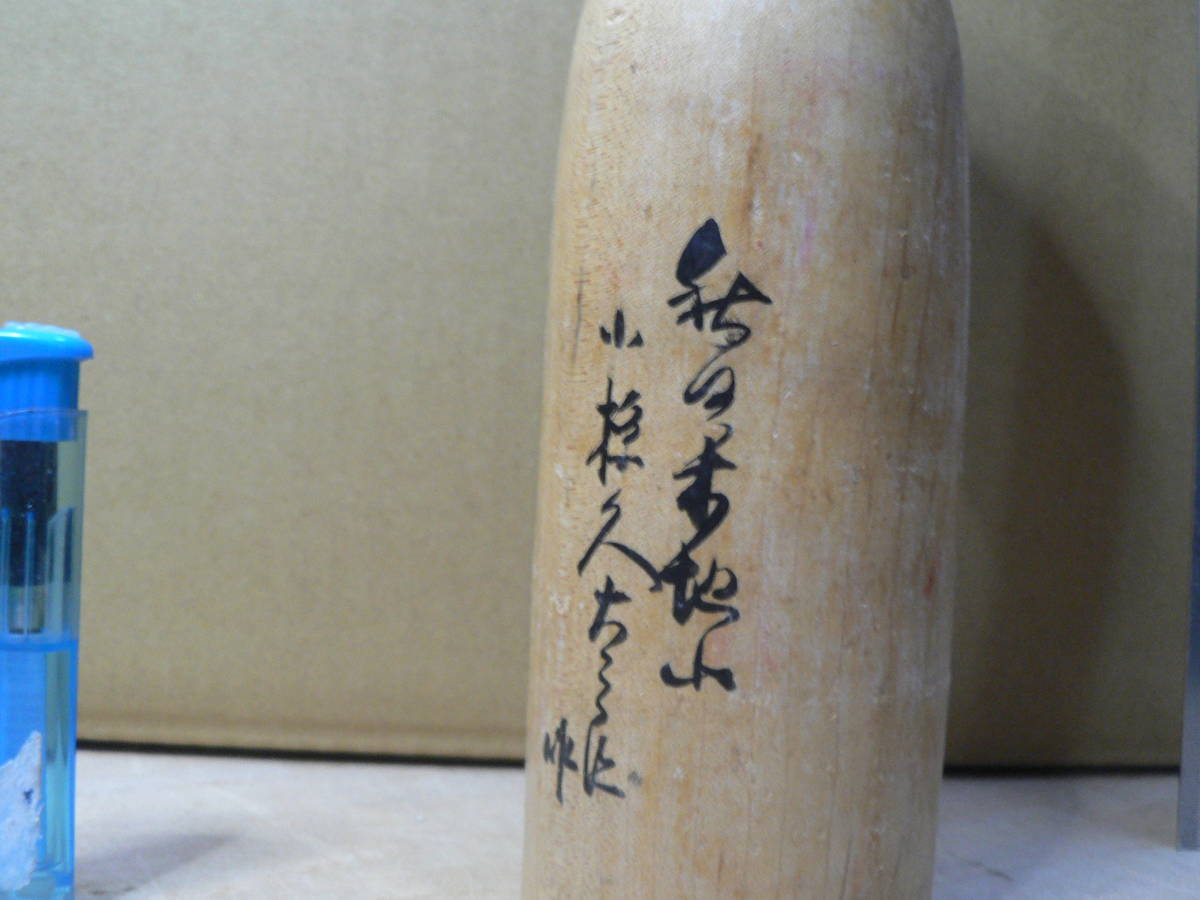 秋田木地山
小椋久太郎作